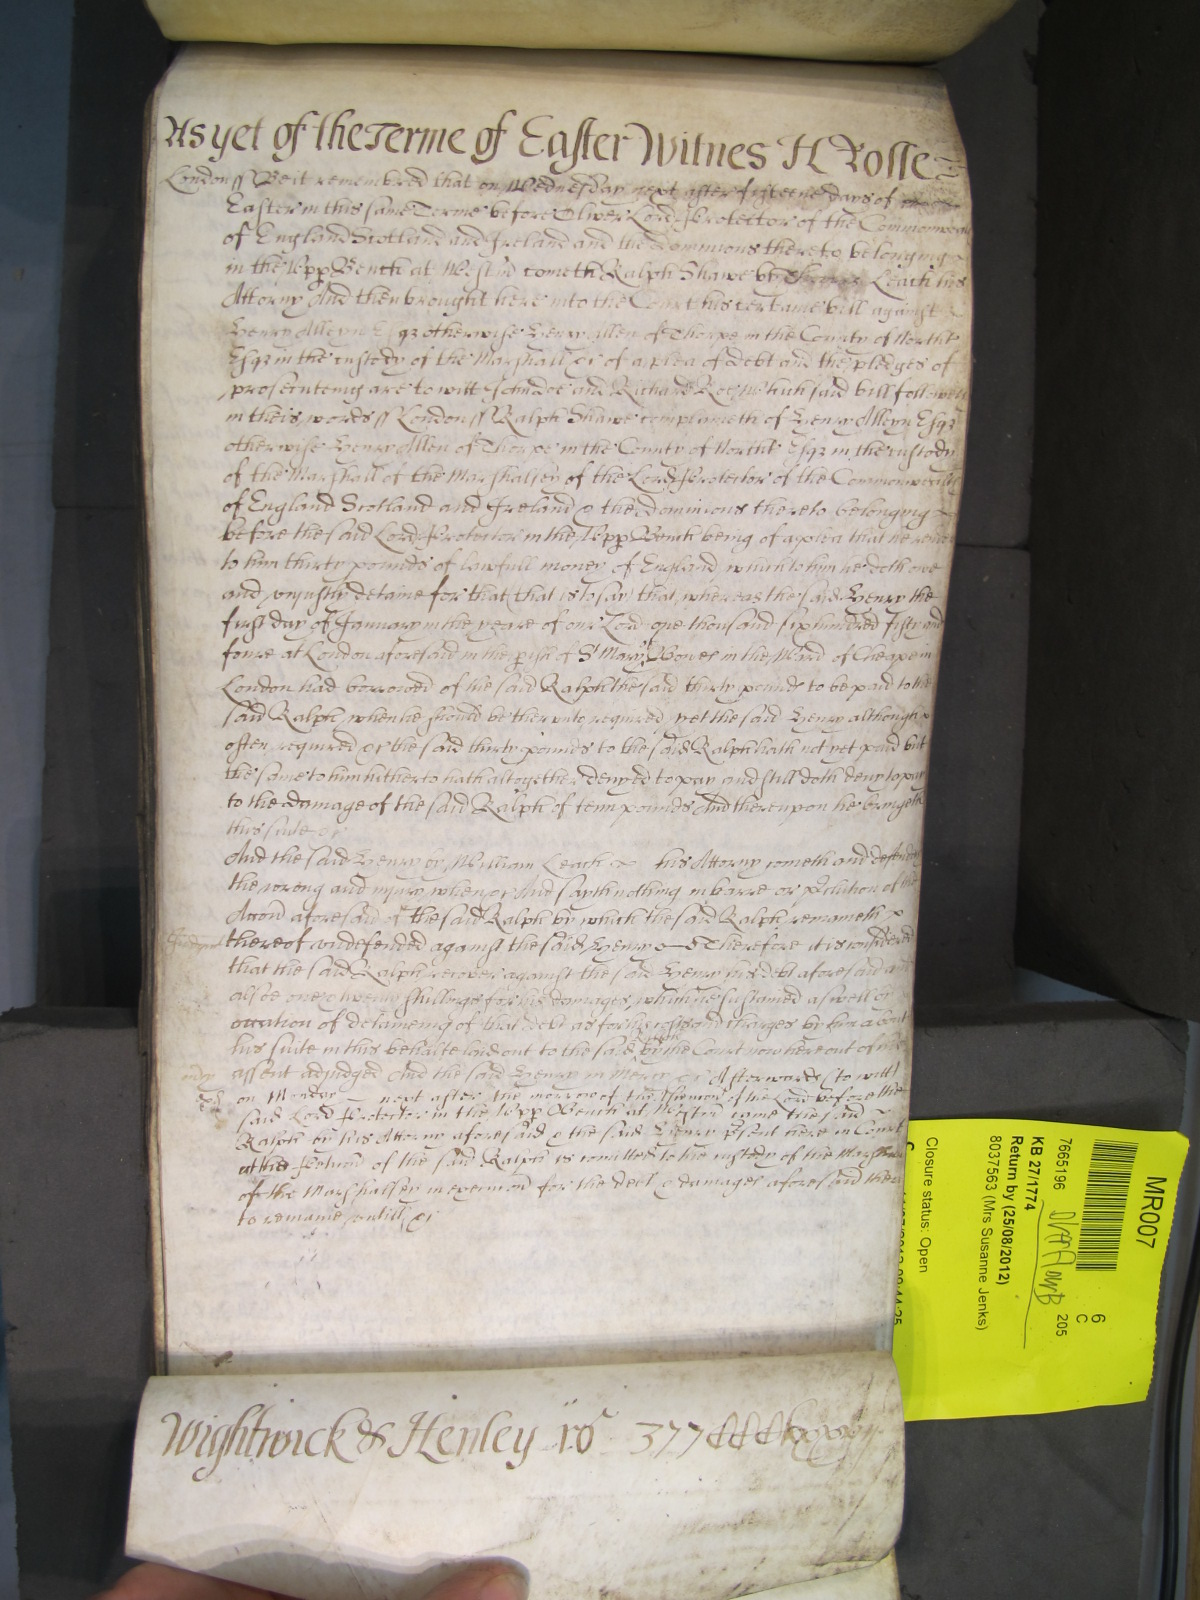 As yet of the Terme of Easter Witnes H Rolle
London ss Be it remembred that on Wednesday next after fifteene dayes of
Easter in this same Terme before Oliver Lord Protector of the Commonwealth
of England Scotland and Ireland and the dominions thereto belonging
in the Upp Bench at Westm cometh Ralph Shawe by Leach his
Attorny And then brought here into the Court his certaine bill against
Henry Alleyn Esqr otherwise Henry Allen of Thorpe in the County of Northt
Esqr in the custody of the Marshall &c of a plea of debt and the pledges of
prosecuteing are to witt John Doe and Richard Roe Which said bill followeth
in theis words ss London ss Ralph Shawe complaineth of Henry Alleyn Esqr
otherwise Henry Allen of Thorpe in the County of Northt Esqr in the custody
of the Marshall of the Marshalsey of the Lord Protector of the Commonwealth
of England Scotland and Ireland & the dominions thereto belonging
before the said Lord Protector in the Upp Bench being of a plea that he render
to him thirty pounds of lawfull money of England which to him he doth owe
and unjustly detaine for that that is to say that whereas the said Henry the
first day of January in the yeare of our Lord one thousand six hundred fifty and
foure at London aforesaid in the pish of St Mary Bowes in the Ward of Cheape in
London had borrowed of the said Ralph the said thirty pounds to be paid to the
said Ralph when he should be thereunto required yet the said Henry although
often required &c the said thirty pounds to the said Ralph hath not yet paid but
the same to him hitherto hath altogether denyed to pay and still doth deny to pay
to the damage of the said Ralph of tenn pounds And thereupon he bringeth
this suite &c
And the said Henry by William Leach his Attorny cometh and defendeth
the wrong and injury when &c And sayth nothing in barre or pclution of the
Accon aforesaid of the said Ralph by which the said Ralph remaineth
thereof undefended against the said Henry Therefore it is considered
that the said Ralph recover against the said Henry his debt aforesaid and
alsoe one & twenty shillings for his damages which he sustained aswell by
occation of detaineing of that debt as for his costs and charges by him about
his suite in this behalfe laid out to the said by the Court now here out of his
assent adjudged And the said Henry in mercy &c Afterwards (to witt)
on Monday next after the morrow of the Ascencon of the Lord before the
said Lord Protector in the Upp Bench at Westm came the said
Ralph by his Attorny aforesaid & the said Henry psent here in Court
at the peticon of the said Ralph is comitted to the custody of the Marshall
of the Marshalsey in execucon for the debt & damages aforesaid there
to remaine untill &c
Wightwick & Henley ro 377
MR007
7665196
KB 27/1774
Return by (25/08/2012)
8037563 (Mrs Susanne Jenks)
Closure status: Open
6
C
205